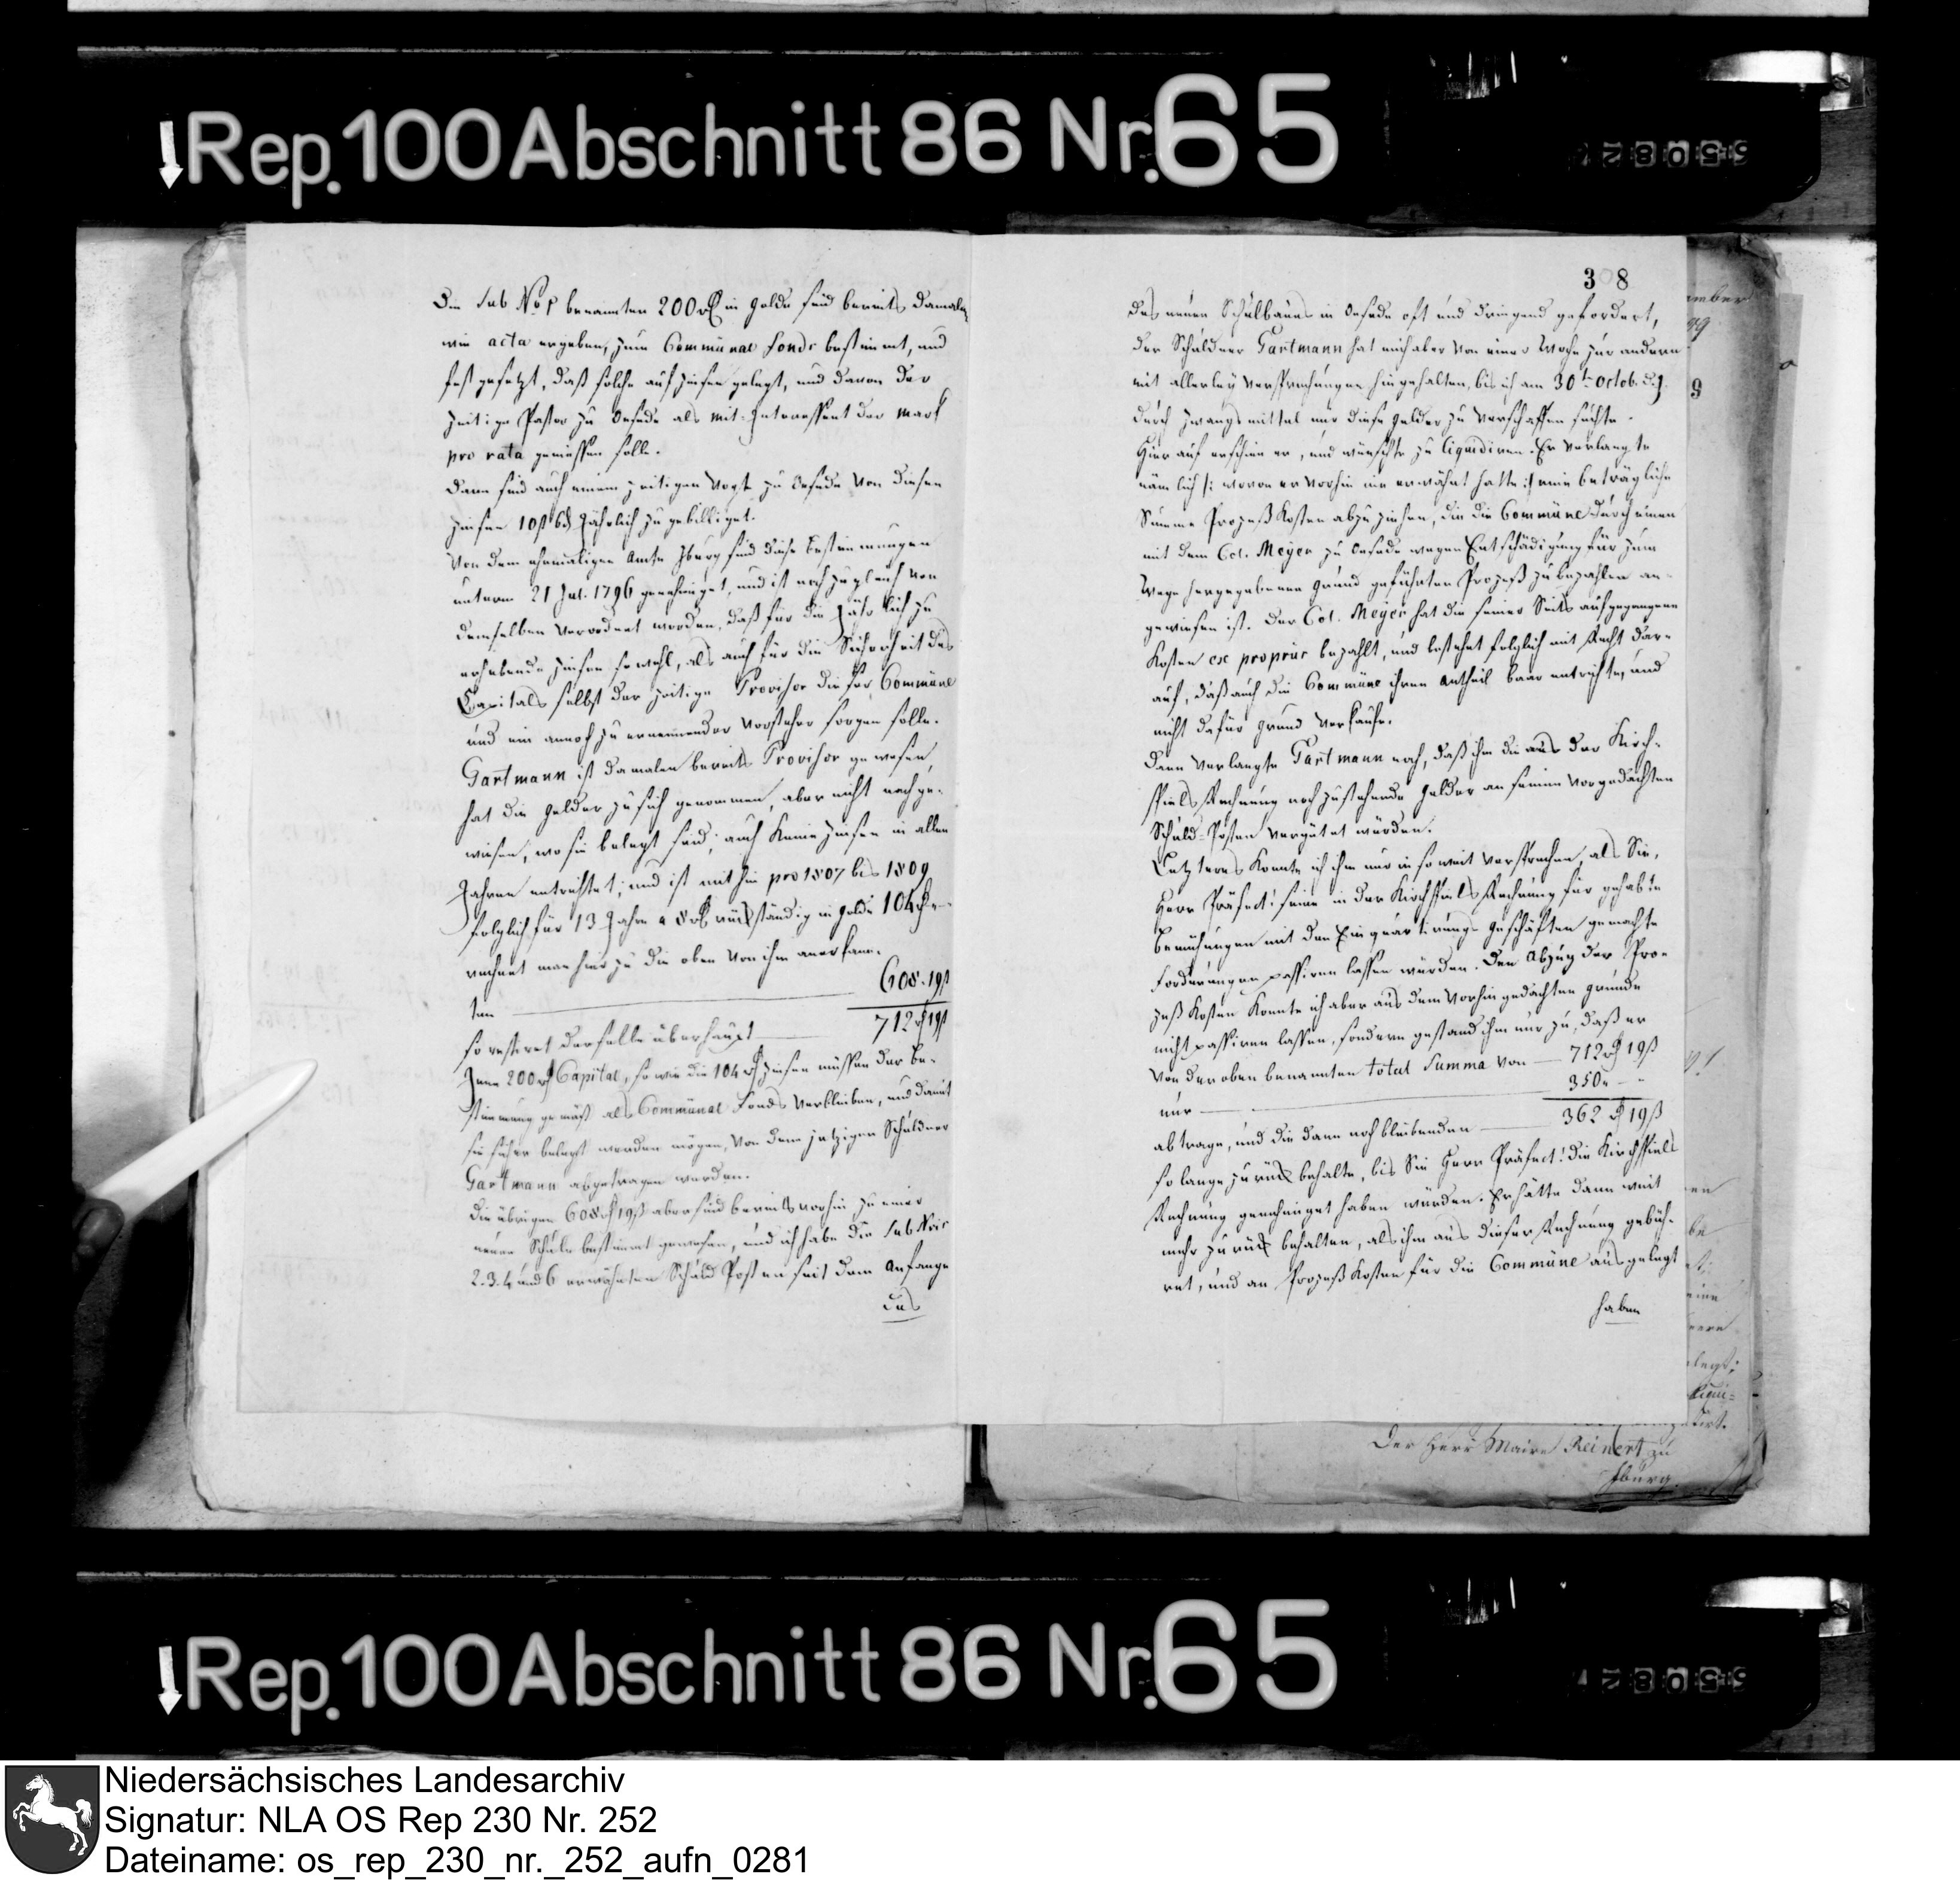 Rep. 100 Abschnitt 86 Nr. 65
Die sub No 1 benannten 200 rℓ in Golde sind bereits damalen
wie acta ergeben, zum Communal Fonds bestimmt, und
fest gesetzt, daß solche auf Zinsen gelegt, und davon der
zeitige Pastor zu Oesede als Mit-Interessent der Mark
pro rata geniessen solle.
Dann sind auch einem zeitigen Vogt zu Oesede von diesen
Zinsen 10ß 6d Jährlich zu gebilliget.
Von dem ehemaligen Amte Iburg sind diese Bestimmungen
unterm 21 Jul. 1796 genehmiget, und ist noch zugleich von
demselben verordnet worden, daß für die Jährlich zu
erhebende Zinsen sowohl, als auch für die Sicherheit des
Capitals selbst der zeitige Provisor dieser Commüne
und ein annoch zu ernennender Vorsteher sorgen solle.
Gartmann ist damalen bereits Provisor gewesen,
hat die Gelder zu sich genommen, aber nicht nachge-
wiesen, wo sie belegt sind; auch keine Zinsen in allen
Jahren entrichtet; und ist mithin pro 1807 bis 1809
folglich für 13 Jahre a 8 rℓ rückständig in Golde 104 rℓ „ -
rechnet man hier zu die oben von ihm anerkann-
ten 608 „ 19ß
so restiret derselbe überhaupt 712 rℓ 19ß
Jene 200 rℓ Capital, so wie die 104 rℓ Zinsen müssen der Be-
stimmung gemäß als Communal Fonds verbleiben, und damit
sie sicher belegt werden mögen, von dem jetzigen Schuldner
Gartmann abgetragen werden.
Die übrigen 608 rℓ 19ß aber sind bereits vorhin zu einer
neuen Schule bestimmt gewesen, und ich habe die sub Nris
2. 3. 4 und 6 erwähnten Schuld Posten seit dem Anfange
des
308
des neuen Schulbaues in Oesede oft und dringend gefordert,
der Schuldner Gartmann hat mich aber von einer Woche zur andern
mit allerley Versprechungen hingehalten, bis ich am 30t Octob. d. J.
durch Zwangsmittel mir diese Gelder zu verschaffen suchte.
Hierauf erschien er, und wünschte zu liquidiren. Er verlangte
nämlich /: wovon er vorhin nie erwähnt hatte :/ eine beträgliche
Summe Prozeß Kosten abzuziehen, die die Commüne durch einen
mit dem Col. Meyer zu Oesede wegen Entschädigung für zum
Wege hergegebenen Grund geführten Prozeß zu bezahlen an-
gewiesen ist. Der Col. Meyer hat die seiner Seits aufgegangene
Kosten ex propriis bezahlt, und bestehet folglich mit Recht dar-
auf, daß auch die Commüne ihren Antheil baar entrichte, und
nicht dafür Grund verkaufe.
Dann verlangte Gartmann noch, daß ihm die aus der Kirch-
spiels Rechnung noch zustehende Gelder an seinen vorgedachten
Schuld-Posten vergütet würden.
Letzteres konnte ich ihm nur in soweit versprechen, als Sie,
Herr Präfect! seine in der Kirchspiels Rechnung für gehabte
Bemühungen mit den Einquartirungs Geschäften gemachte
Forderungen passiren lassen würden. Den Abzug der Pro-
zeß Kosten konnte ich aber aus dem vorhin gedachten Grunde
nicht passiren lassen, sondern gestand ihm nur zu, daß er
von der oben benannten total Summa von 712 rℓ 19ß
nur 350 „ - „
abtrage, und die dann noch bleibenden 362 rℓ 19ß
so lange zurück behalte, bis Sie Herr Präfect! die Kirchspiels
Rechnung genehmiget haben würden. Er hätte dann weit
mehr zurück behalten, als ihm aus dieser Rechnung gebüh-
ret, und an Prozeß Kosten für die Commüne ausgelegt
haben
Der Herr Maire Reinert zu
Iburg.
Rep. 100 Abschnitt 86 Nr. 65
Niedersächsisches Landesarchiv
Signatur: NLA OS Rep 230 Nr. 252
Dateiname: os_rep_230_nr._252_aufn_0281